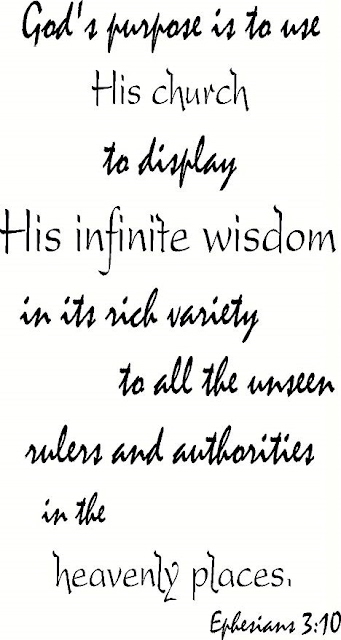 God's purpose is to use
His church
to display
His infinite wisdom
in its rich variety
to all the unseen
rulers and authorities
in the
heavenly places.
Ephesians 3:10